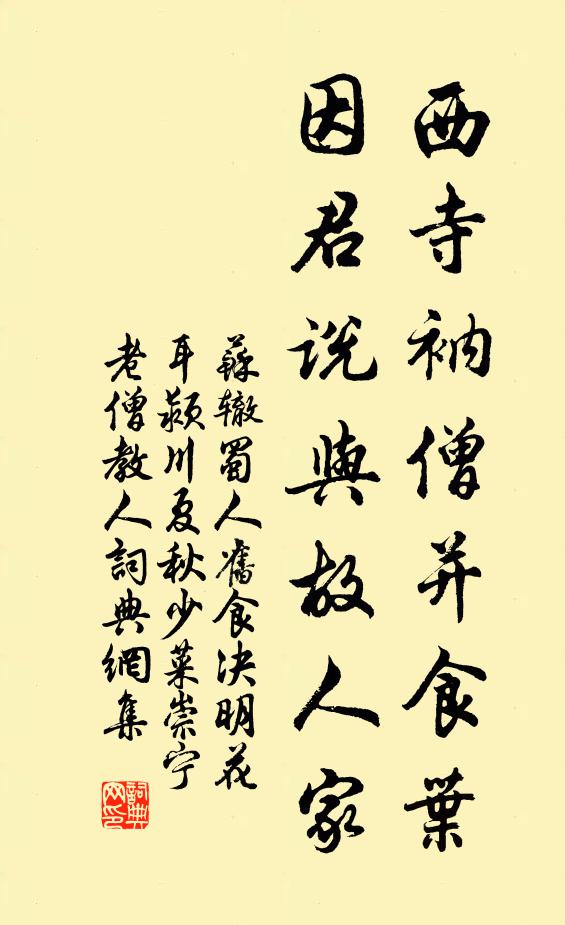 西寺衲僧并食葉
因君説與故人家
蘇辙蜀人舊食决明花
耳颍川夏秋少菜崇宁
老僧教人詞典網集
詞典
网印